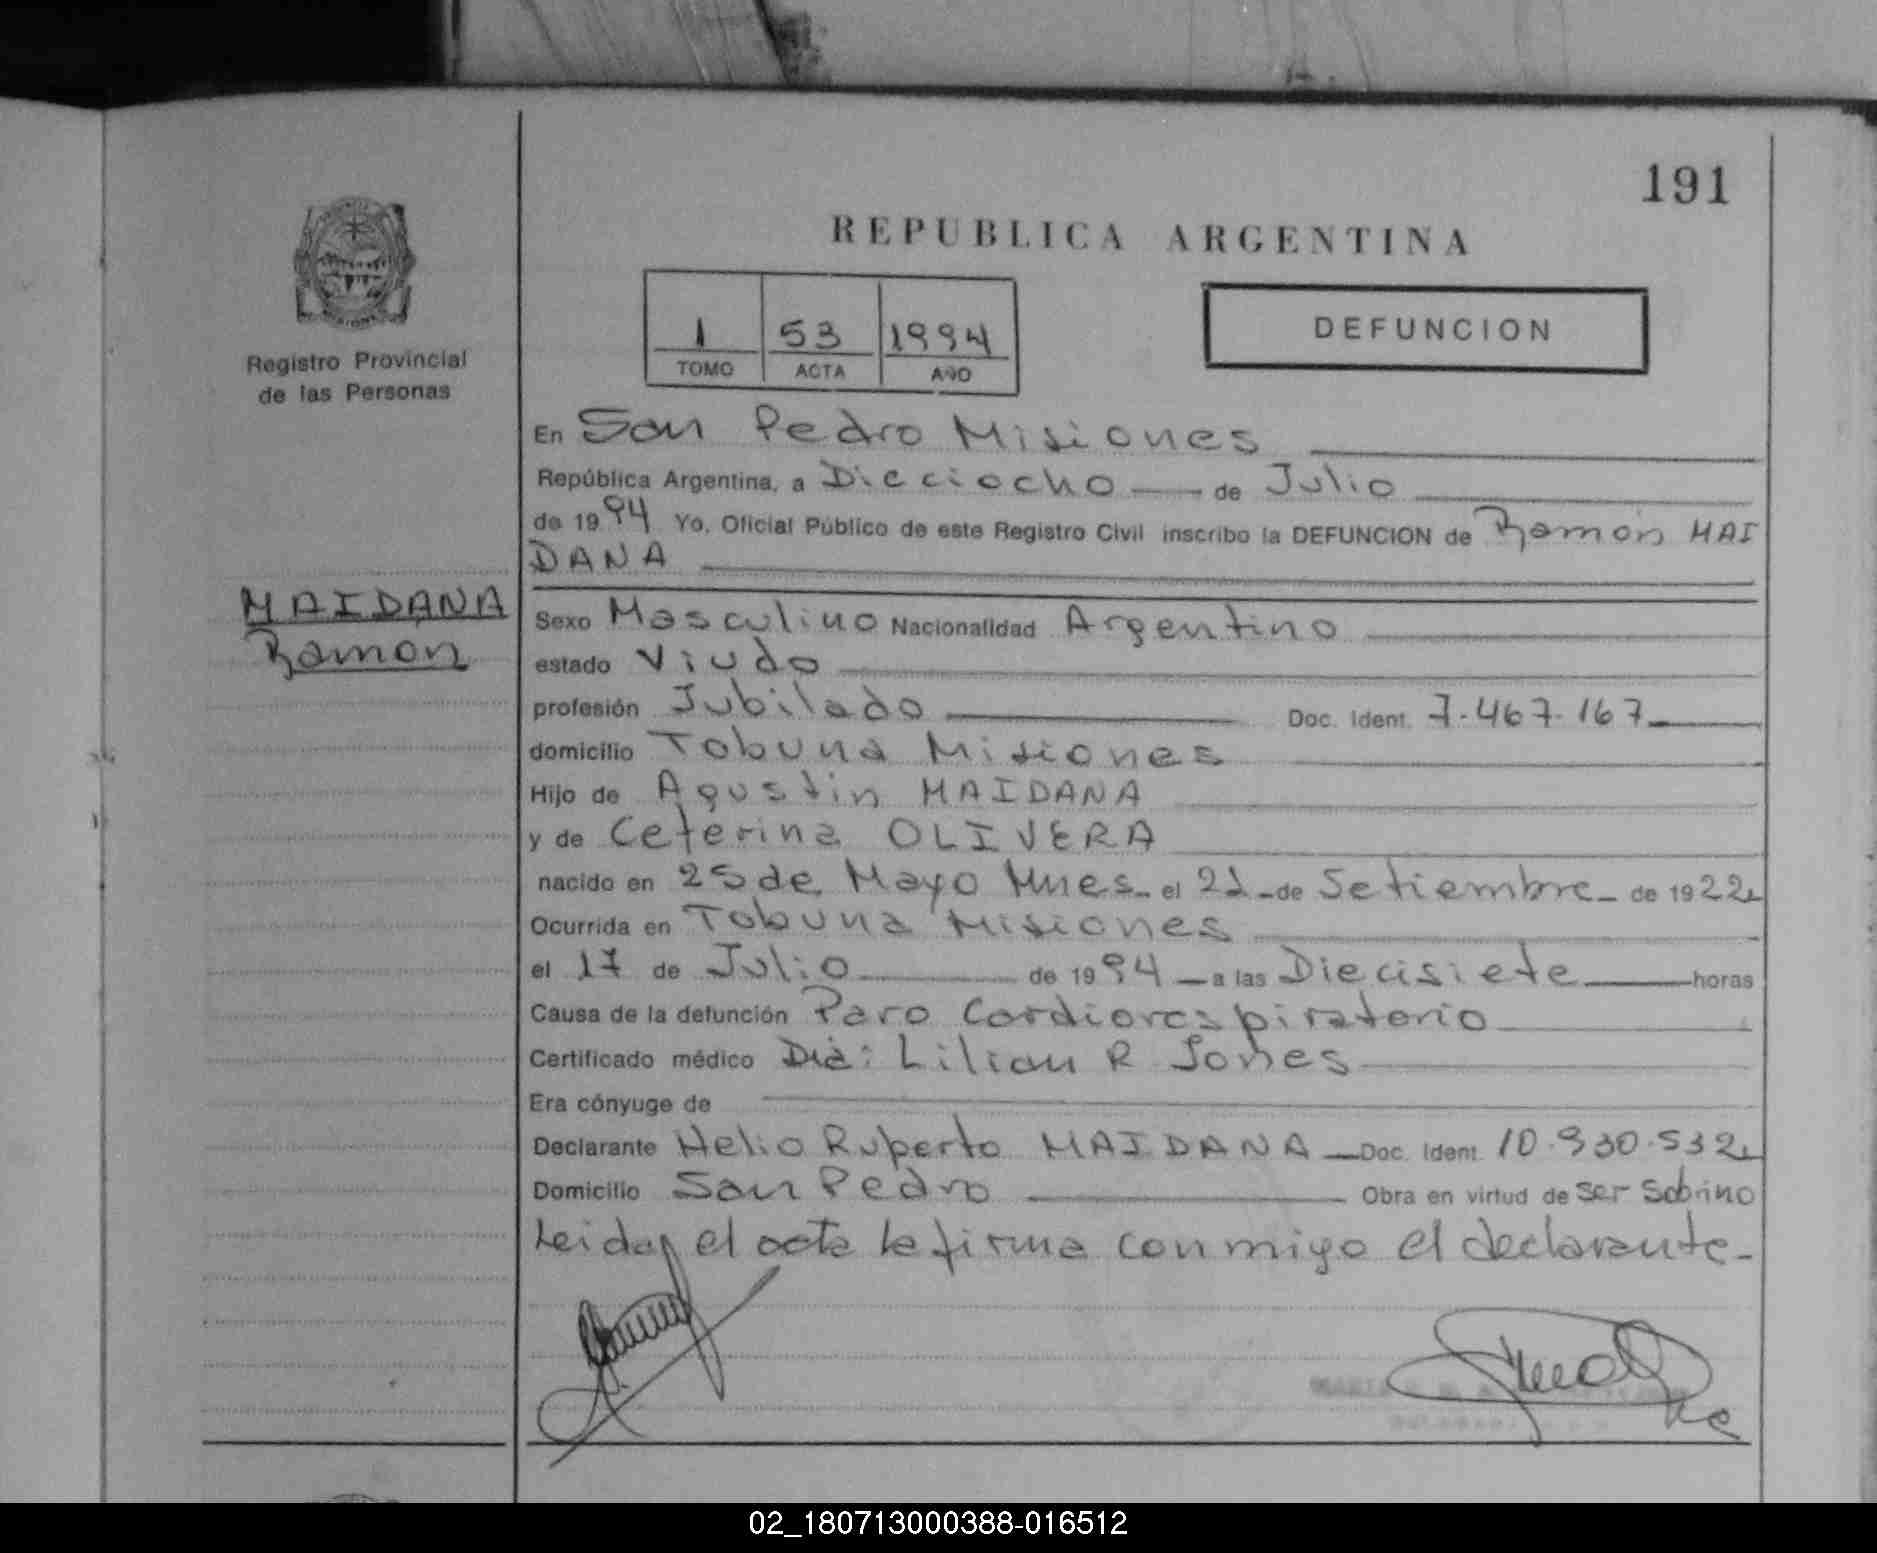 191
REPUBLICA ARGENTINA
Registro Provincial
de las Personas
1 53 1994
TOMO ACTA AÑO
DEFUNCION
En San Pedro Misiones
República Argentina, a Dieciocho de Julio
de 1994 Yo, Oficial Público de este Registro Civil inscribo la DEFUNCION de Ramón MAI
DANA
MAIDANA
Ramon
Sexo Masculino Nacionalidad Argentino
estado Viudo
profesión Jubilado Doc. Ident. 7.467.167
domicilio Tobuna Misiones
Hijo de Agustin MAIDANA
y de Ceferina OLIVERA
nacido en 25 de Mayo Mnes el 21 de Setiembre de 1922
Ocurrida en Tobuna Misiones
el 17 de Julio de 1994 a las Diecisiete horas
Causa de la defunción Paro Cardiorespiratorio
Certificado médico Dra: Lilian R Jones
Era cónyuge de
Declarante Helio Ruperto MAIDANA Doc. Ident. 10.930.532
Domicilio San Pedro Obra en virtud de ser Sobrino
Leida el acta la firma conmigo el declarante
02_180713000388-016512